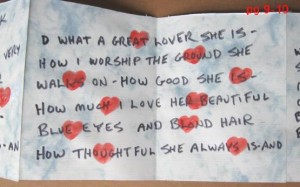 pg 9-10
D WHAT A GREAT LOVER SHE IS-
HOW I WORSHIP THE GROUND SHE
WALKS ON - HOW GOOD SHE IS-
HOW MUCH I LOVE HER BEAUTIFUL
BLUE EYES AND BLOND HAIR
HOW THOUGHTFUL SHE ALWAYS IS-AND
VERY
-AN